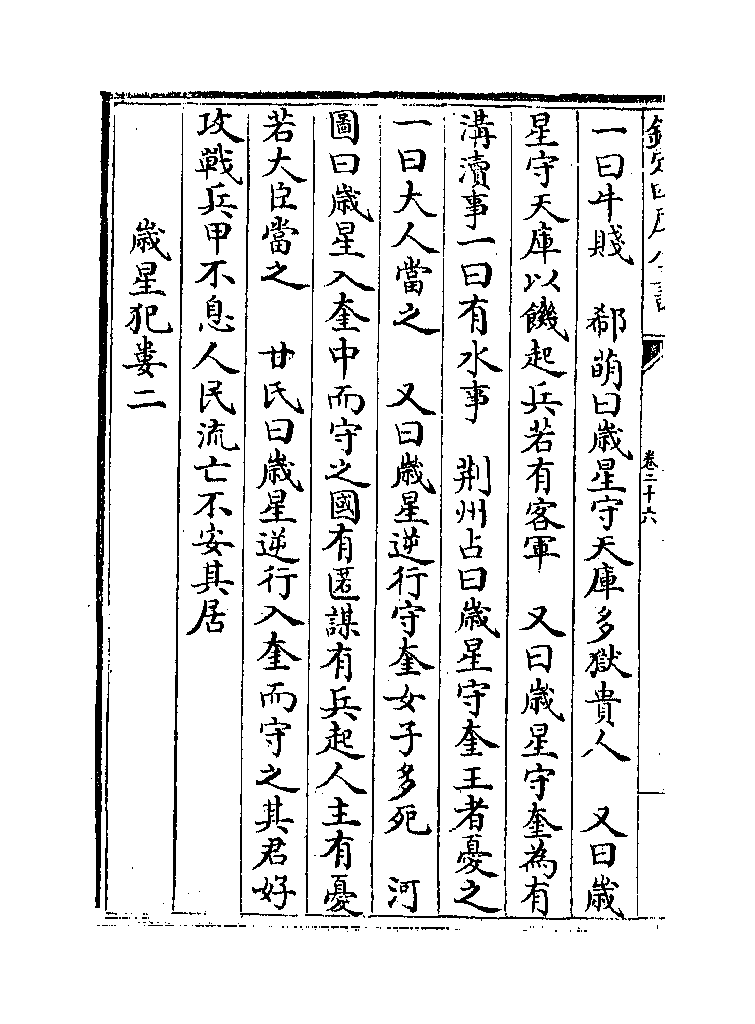 卷二十六
一曰牛賤　郗萌曰歲星守天庫多獄貴人　又曰歲
星守天庫以饑起兵若有客軍　又曰歲星守奎為有
溝瀆事一曰有水事　荆州占曰歲星守奎王者憂之
一曰大人當之　又曰歲星逆行守奎女子多死　河
圖曰歲星入奎中而守之國有匿謀有兵起人主有憂
若大臣當之　甘氏曰歲星逆行入奎而守之其君好
攻戰兵甲不息人民流亡不安其居
歲星犯婁二